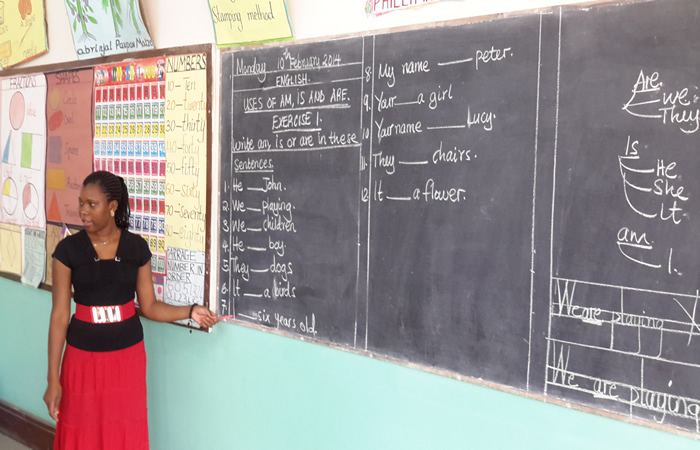 Stamping method
abrinjal Pawpaw
SHAPES
NUMBERS
10-Ten
20-twenty
30-thirty
40-forty
50-fifty
60-sixty
70-seventy
80-eighty
ARRAGE
NUMBER IN
ORDER
Monday 10th February 2014
ENGLISH.
USES OF AM, IS AND ARE.
EXERCISE 1.
Write am, is or are in these
Sentences.
1. He ___ John.
2. We ___ playing.
3. We ___ children
4. He ___ boy.
5. They ___ dogs
6. It ___ a birds
___ six years old.
8. My name ___ peter.
9. Your ___ a girl
10. Your name ___ Lucy.
11. They ___ chairs.
12. It ___ a flower.
Are
we
They
Is
He
She
it
am
I.
We are playing
We are playing